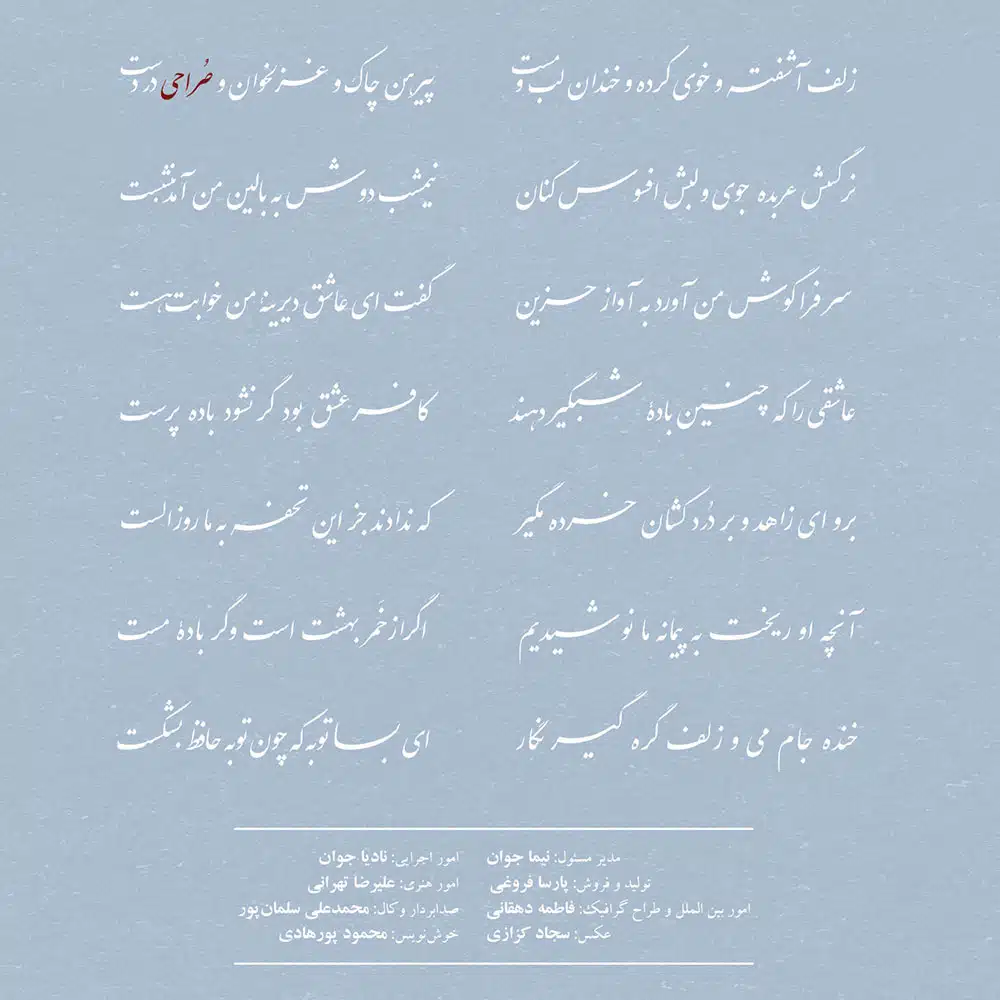 زلف آشفته و خوی کرده و خندان لب و مست پیرهن چاک و غزلخوان و صُراحی در دست
نرگسش عربده جوی و لبش افسوس کنان نیمشب دوش به بالین من آمد بنشست
سر فرا گوش من آورد به آواز حزین گفت ای عاشق دیرینهٔ من خوابت هست
عاشقی را که چنین بادهٔ شبگیر دهند کافر عشق بود گر نشود باده پرست
برو ای زاهد و بر دُرد کشان خرده مگیر که ندادند جز این تحفه به ما روز الست
آنچه او ریخت به پیمانه ما نوشیدیم اگر از خَمر بهشت است وگر بادهٔ مست
خنده جام می و زلف گره گیر نگار ای بسا توبه که چون توبه حافظ بشکست
مدیر مسئول: نیما جوان امور اجرایی: نادیا جوان
تولید و فروش: پارسا فروغی امور هنری: علیرضا تهرانی
امور بین الملل و طراح گرافیک: فاطمه دهقانی صدابردار وکال: محمدعلی سلمان‌پور
عکس: سجاد کزازی خوش‌نویس: محمود پورهادی